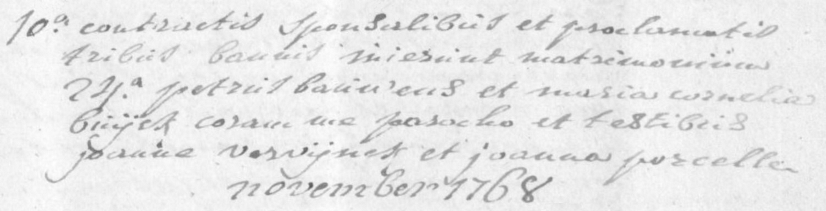 10a contractis sponsalibus et proclamatis
tribus bannis inierunt matrimonium
24.a petrus bauwens et maria cornelia
buijck coram me parocho et testibus
joanne vervijnck et joanna porcelle
november 1768